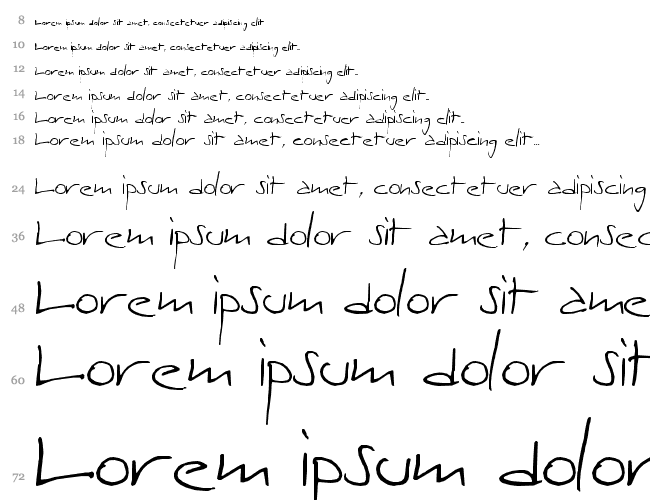 8 Lorem ipsum dolor sit amet, consectetuer adipiscing elit
10 Lorem ipsum dolor sit amet, consectetuer adipiscing elit..
12 Lorem ipsum dolor sit amet, consectetuer adipiscing elit...
14 Lorem ipsum dolor sit amet, consectetuer adipiscing elit...
16 Lorem ipsum dolor sit amet, consectetuer adipiscing elit...
18 Lorem ipsum dolor sit amet, consectetuer adipiscing elit...
24 Lorem ipsum dolor sit amet, consectetuer adipiscing
36 Lorem ipsum dolor sit amet, consec
48 Lorem ipsum dolor sit ame
60 Lorem ipsum dolor sit
72 Lorem ipsum dolor